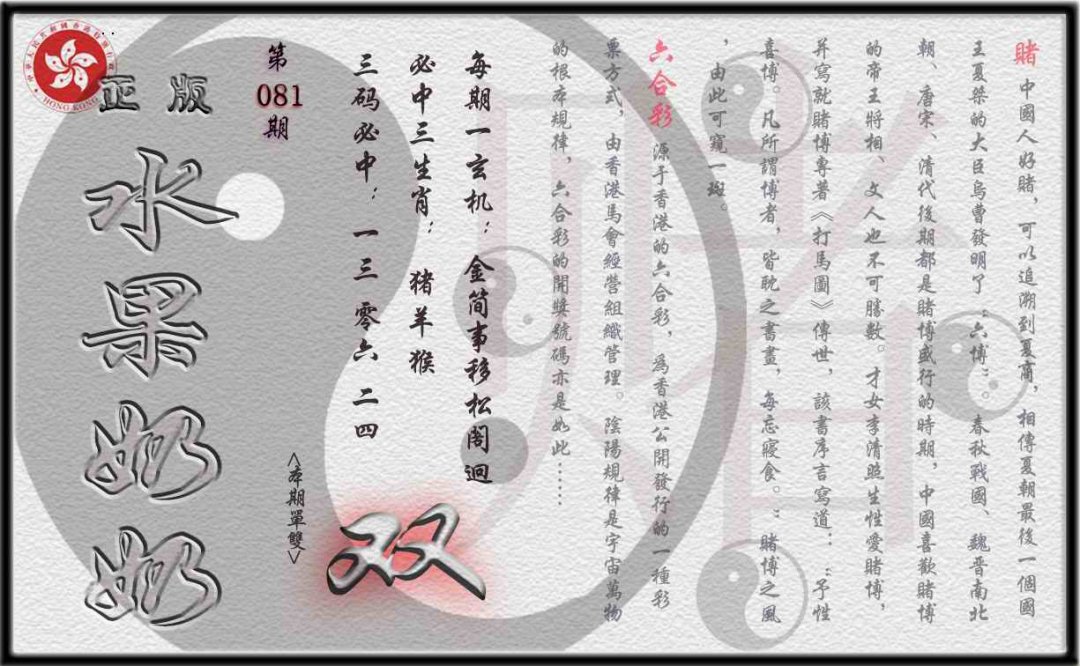 賭 中國人好賭，可以追溯到夏商，相傳夏朝最後一個國
王夏桀的大臣烏曹發明了“六博”。春秋戰國、魏晉南北
朝、唐宋、清代後期都是賭博盛行的時期，中國喜歡賭博
的帝王將相、文人也不可勝數。才女李清照生性愛賭博，
并寫就賭博專著《打馬圖》傳世，該書序言寫道：“予性
喜博。凡所謂博者，皆耽之書畫，每忘寢食。”賭博之風
，由此可窺一斑。
六合彩 源于香港的六合彩，為香港公開發行的一種彩
票方式，由香港馬會經營組織管理。陰陽規律是宇宙萬物
的根本規律，六合彩的開獎號碼亦是如此……
每期一玄机：金简事移松阁迥
必中三生肖：猪羊猴
三码必中：一三 零六 二四
双
<本期單雙>
第081期
正版
水果奶奶
HONG KONG